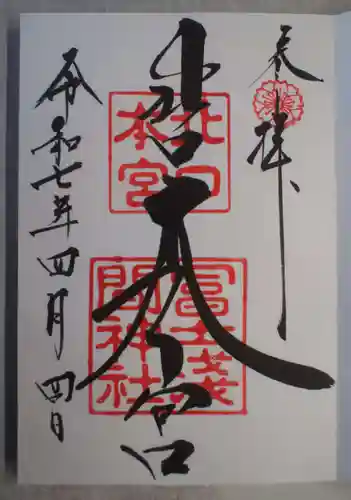 奉拝
北口
本宮
冨士浅
間神社
宮
令和七年四月四日